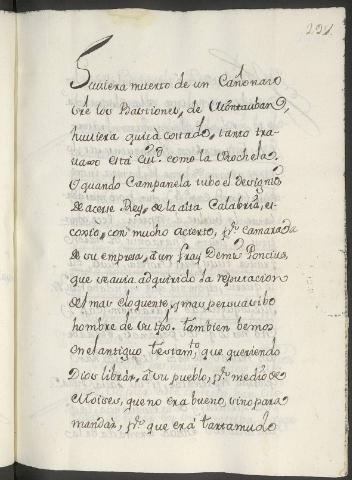 huviera muerto de un Cañonazo
sobre los Bastiones, de Montauban,
huviera quizá costado, tanto tra-
uaxo esta Ciud. como la Rochela.
O quando Campanela tubo el designio
de acerse Rey, de la alta Calabria, es-
cogio, con mucho acierto, pr. camarada
de su empresa, à un fray Demo Poncius,
que se auia adquirido la reputacion
del mas eloquente, y mas persuasibo
hombre de su tpo. tambien bemos
en el antiguo testamto, que queriendo
Dios librar, à su pueblo, pr. medio de
Moises, que no era bueno, sino para
mandar, pr. que era tartamudo